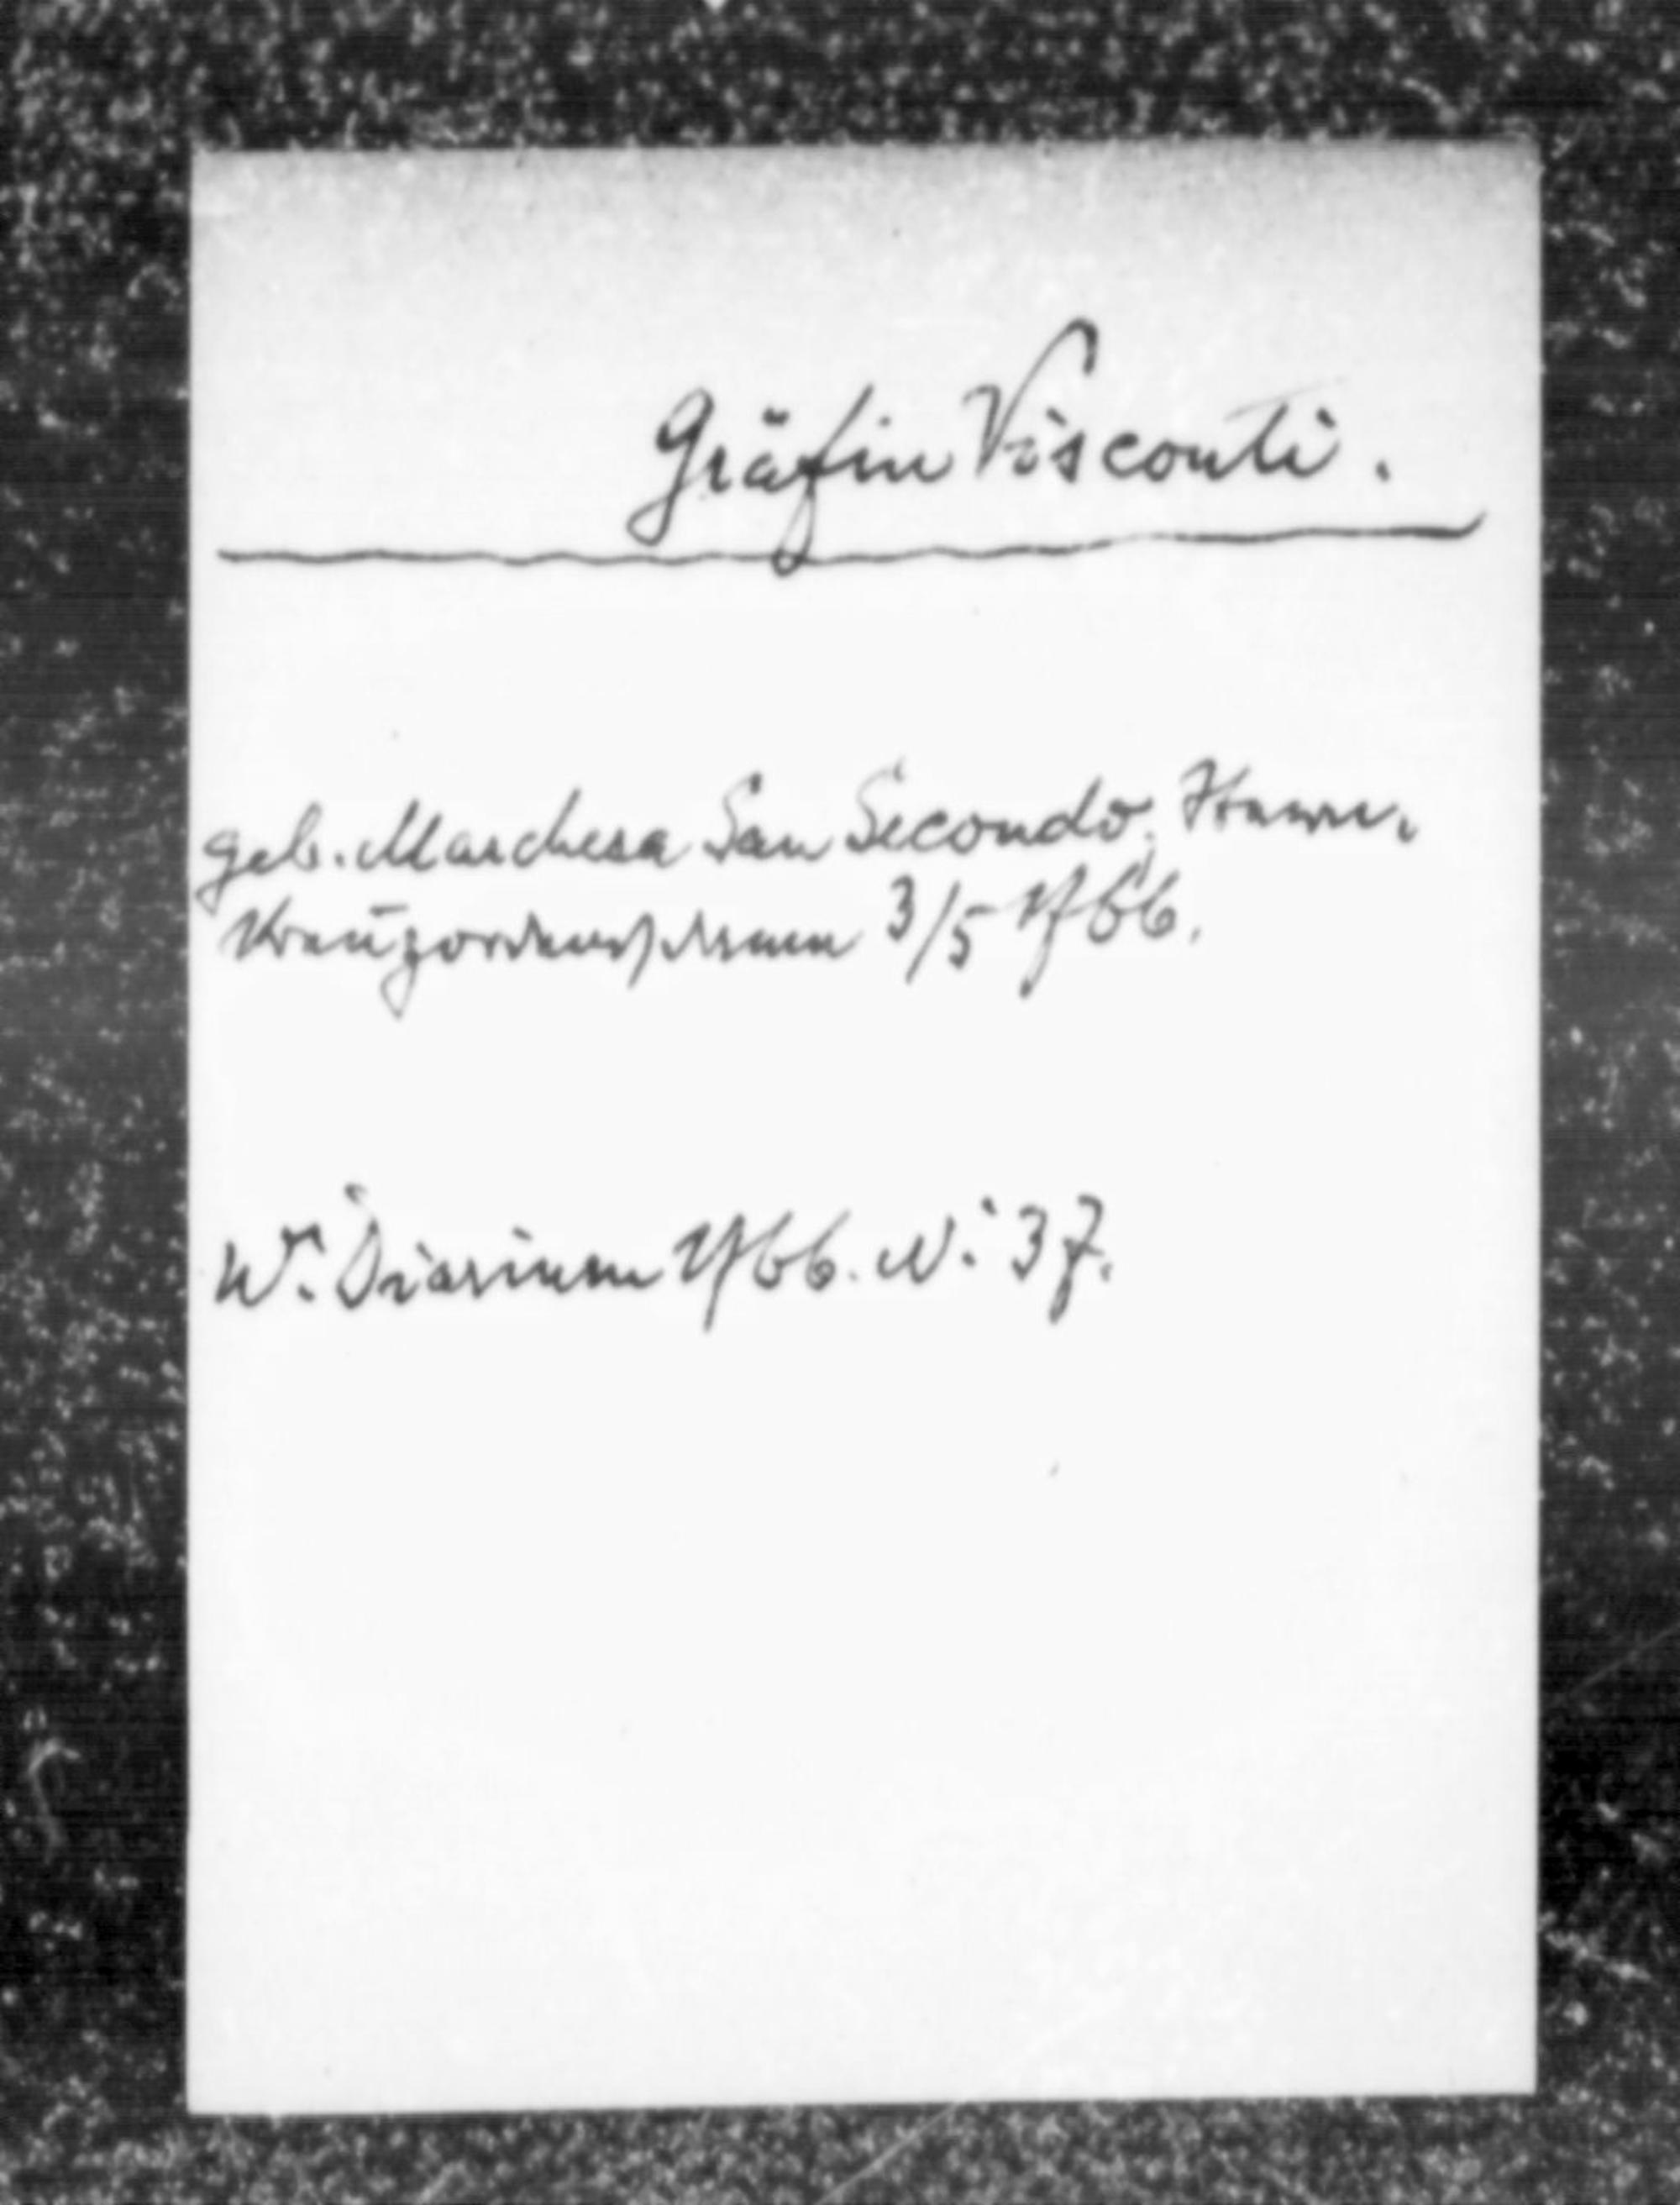 Gräfin Visconti.
geb. Marchesa San Secondo, Stern-
Kreuzordensdame 3/5 1766.
Wr. Diarium 1766. N. 37.